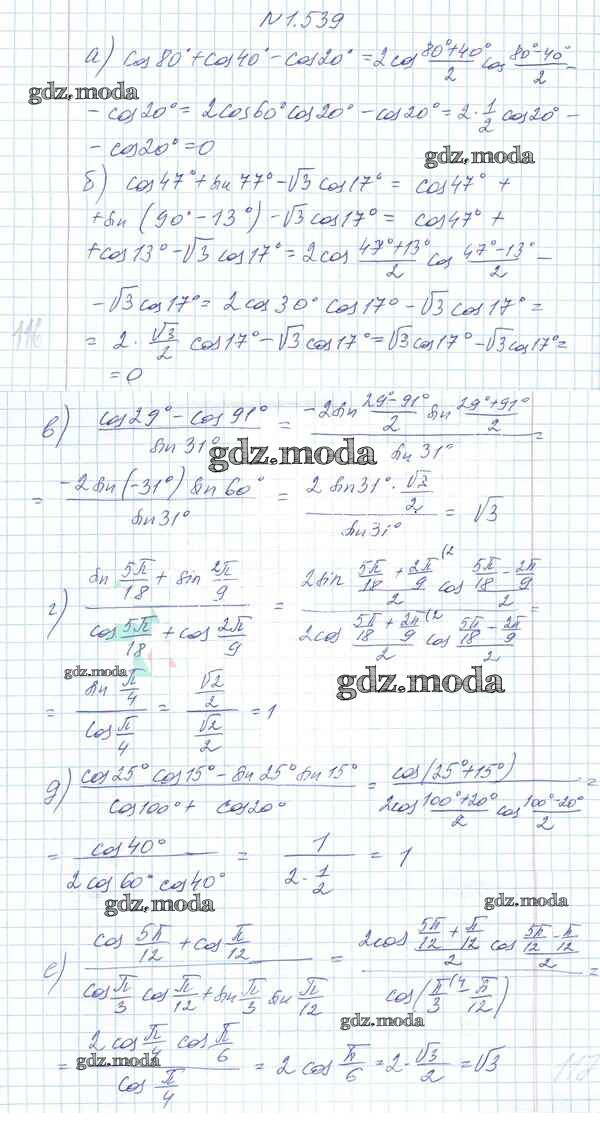 N 1.539
а) cos80° + cos40° - cos20° = 2cos (80°+40°)/2 cos (80°-40°)/2 -
gdz.moda
- cos20° = 2cos60° cos20° - cos20° = 2 · 1/2 cos20° -
- cos20° = 0
gdz.moda
б) cos47° + sin77° - √3 cos17° = cos47° +
+ sin (90° - 13°) - √3 cos17° = cos47° +
+ cos13° - √3 cos17° = 2cos (47°+13°)/2 cos (47°-13°)/2 -
- √3 cos17° = 2cos30° cos17° - √3 cos17° =
116
= 2 · √3/2 cos17° - √3 cos17° = √3 cos17° - √3 cos17° =
= 0
в) (cos29° - cos91°)/(sin31°) = (-2sin (29°-91°)/2 sin (29°+91°)/2)/(sin31°) =
gdz.moda
= (-2sin(-31°) sin60°)/(sin31°) = (2sin31° · √2/2)/(sin31°) = √3
г) (sin 5π/18 + sin 2π/9)/(cos 5π/18 + cos 2π/9) = (2sin (5π/18 + 2π/9 (2)/2 cos (5π/18 - 2π/9)/2)/(2cos (5π/18 + 2π/9 (2)/2 cos (5π/18 - 2π/9)/2) =
gdz.moda
gdz.moda
= (sin π/4)/(cos π/4) = (√2/2)/(√2/2) = 1
д) (cos25° cos15° - sin25° sin15°)/(cos100° + cos20°) = (cos(25°+15°))/(2cos (100°+20°)/2 cos (100°-20°)/2) =
= (cos40°)/(2cos60° cos40°) = 1/(2 · 1/2) = 1
gdz.moda
gdz.moda
е) (cos 5π/12 + cos π/12)/(cos π/3 cos π/12 + sin π/3 sin π/12) = (2cos (5π/12 + π/12)/2 cos (5π/12 - π/12)/2)/(cos(π/3 (4 - π/12)) =
gdz.moda
= (2cos π/4 cos π/6)/(cos π/4) = 2cos π/6 = 2 · √3/2 = √3
gdz.moda
gdz.moda